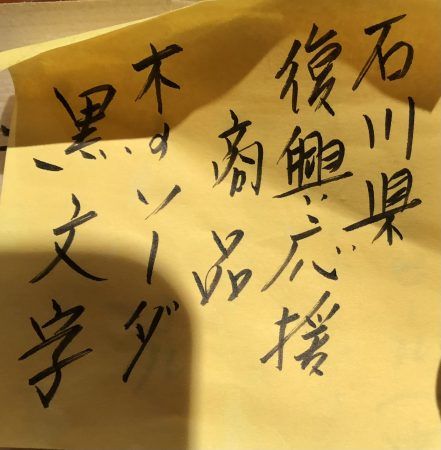 石川県
復興応援
商品
木のソーダ
黒文字